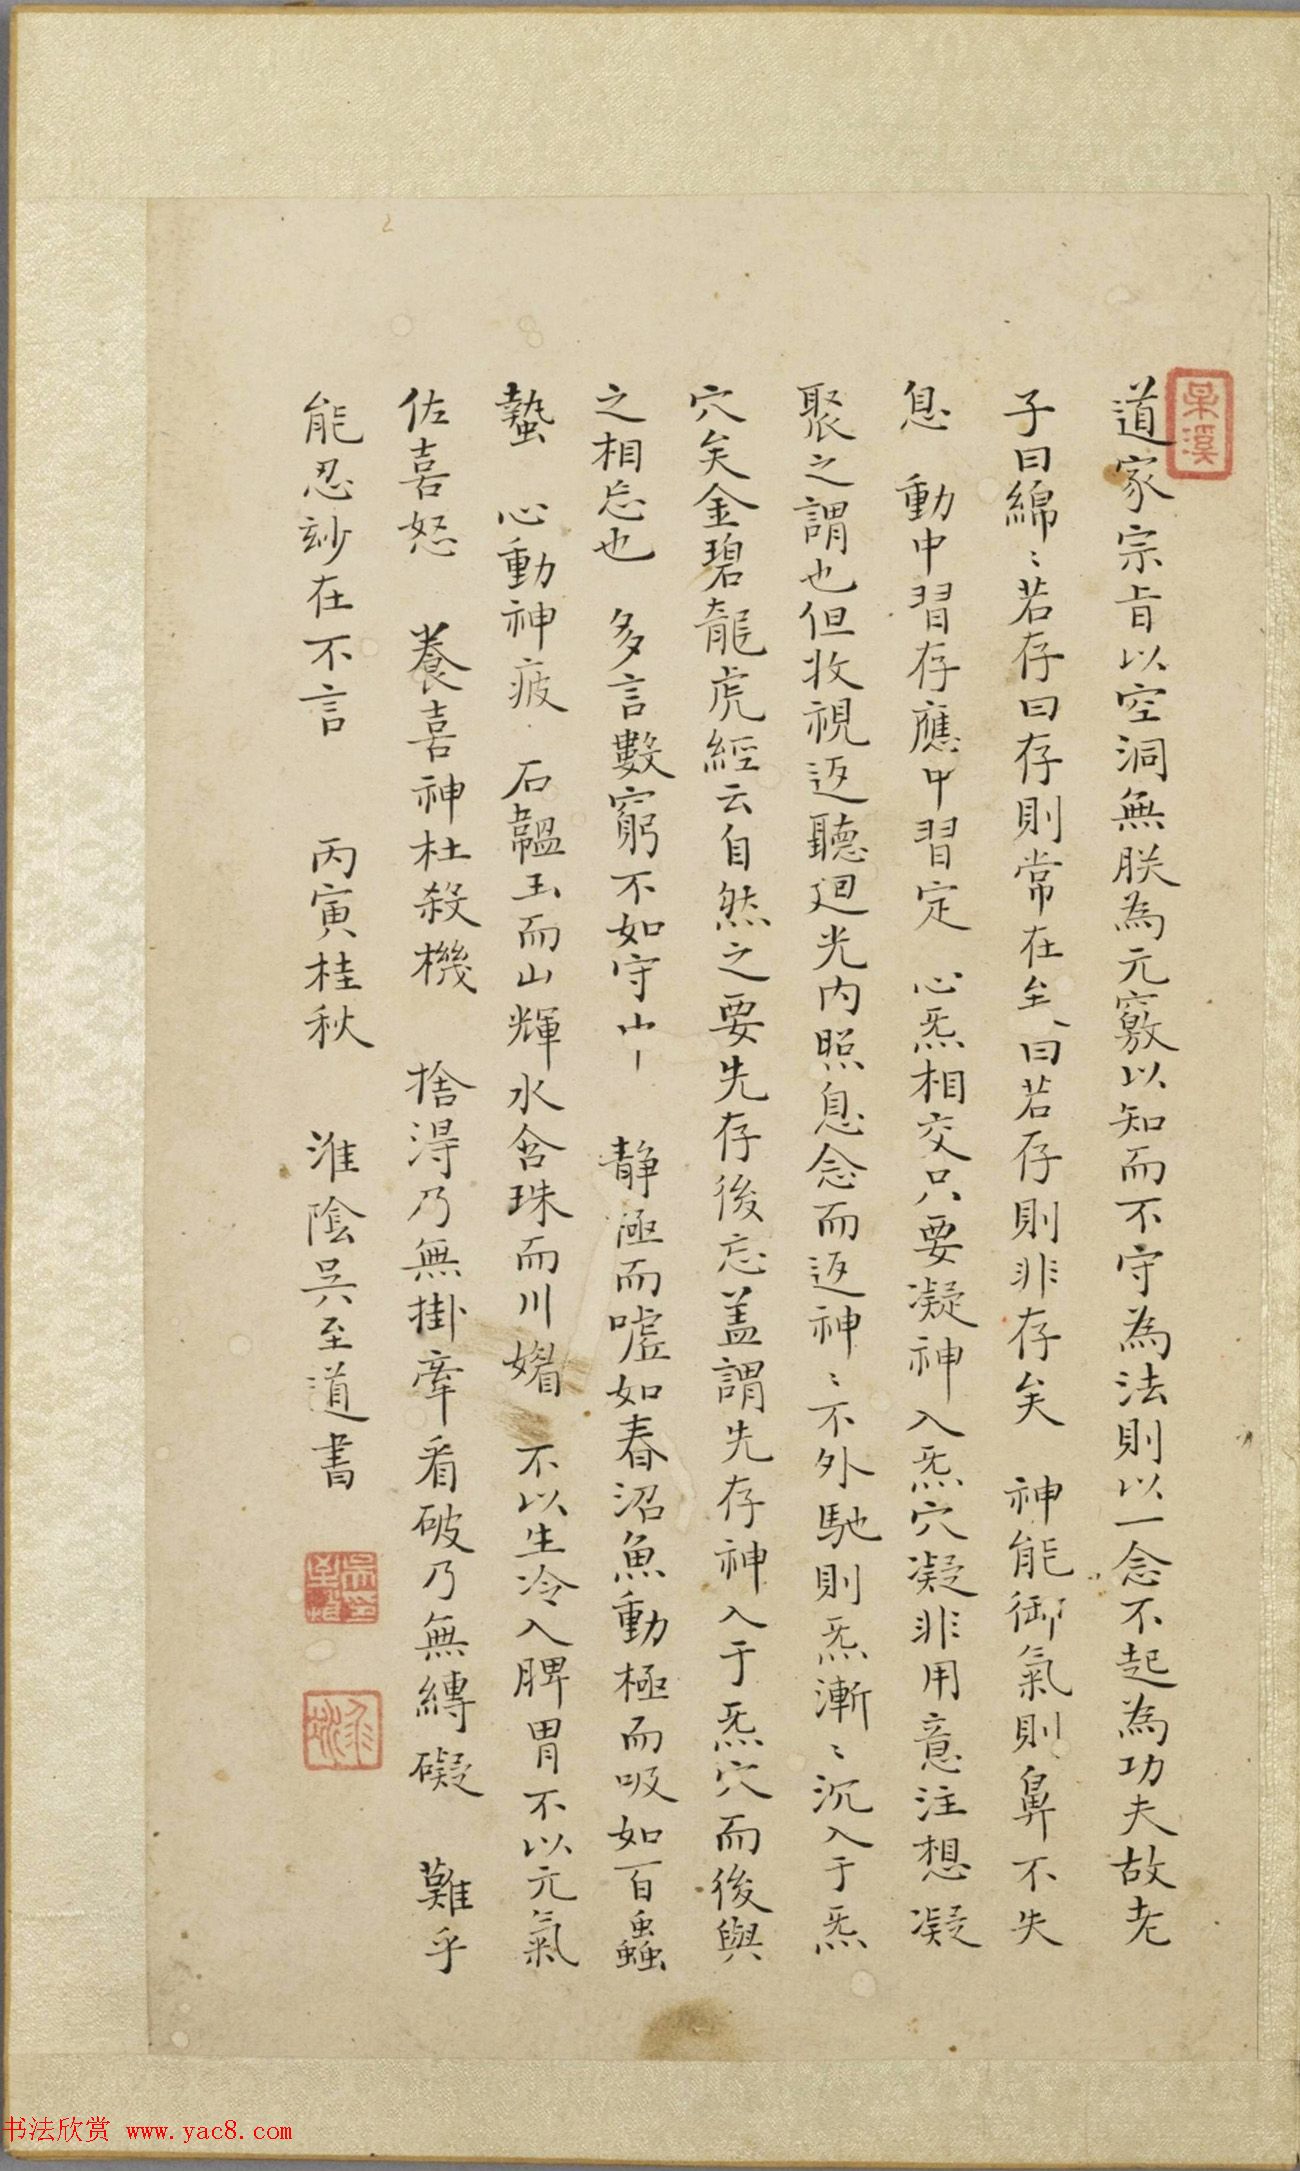 道家宗旨以空洞無朕為元竅以知而不守為法則以一念不起為功夫故老
子曰綿〻若存曰存則常在至、曰若存則非存矣 神能御氣則鼻不失
息 動中習存應中習定 心炁相交只要凝神入炁穴凝非用意注想凝
聚之謂也但收視返聽迴光內照息念而返神〻不外馳則炁漸〻沉入于炁
穴矣金碧龍虎經云自然之要先存後忘盖謂先存神入于炁穴而後與
之相忘也 多言數窮不如守中 靜極而噓如春沼魚動極而吸如百蟲
蟄 心動神疲 石韞玉而山輝水含珠而川媚 不以生冷入脾胃不以元氣
佐喜怒 養喜神杜殺機 捨得乃無掛牽看破乃無縛礙 難乎
能忍妙在不言 丙寅桂秋 淮陰吳至道書
书法欣赏 www.yac8.com